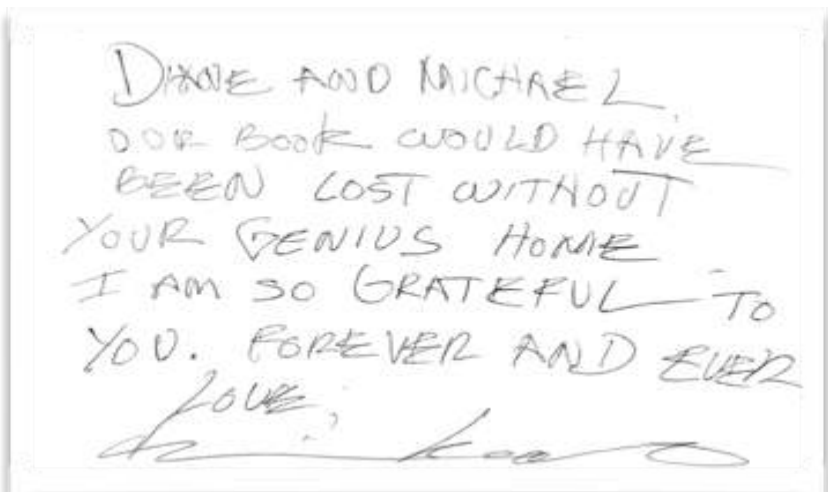 DIANE AND MICHAEL
OUR BOOK WOULD HAVE
BEEN LOST WITHOUT
YOUR GENIUS HOME
I AM SO GRATEFUL TO
YOU. FOREVER AND EVER
LOVE,